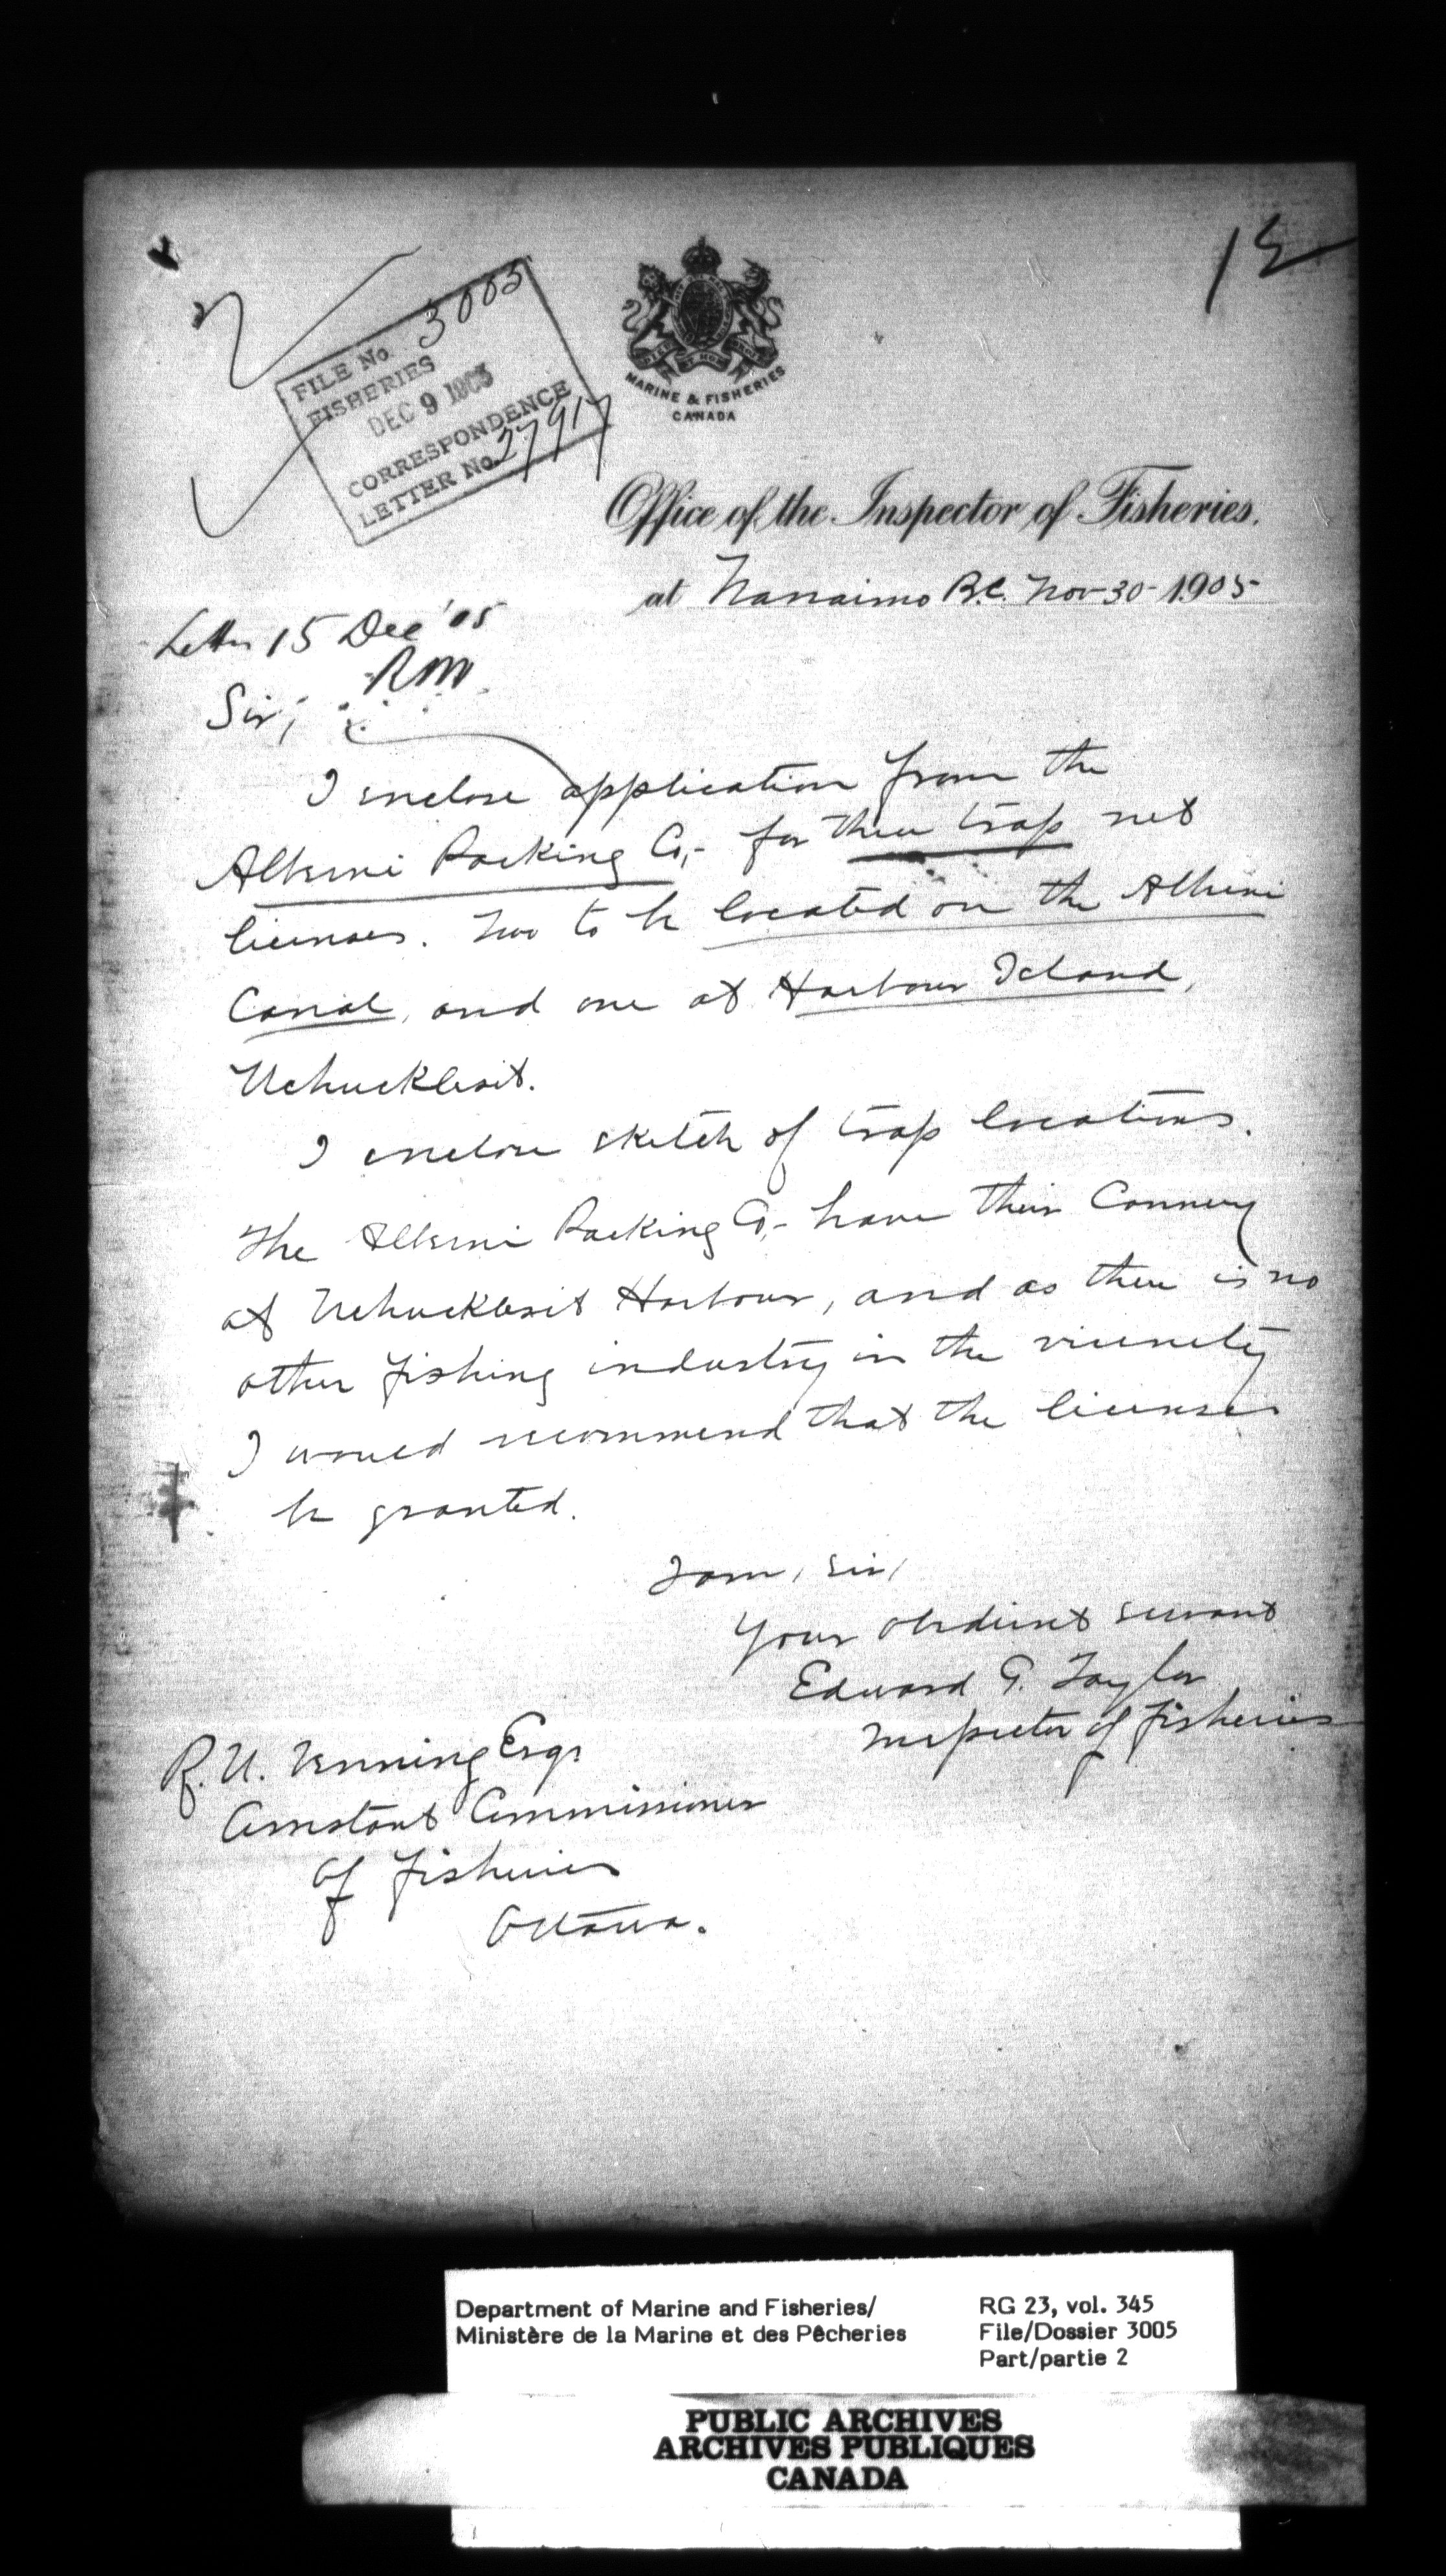 15
FILE No. 3005
FISHERIES
DEC 9 1905
CORRESPONDENCE
LETTER No. 27917
MARINE & FISHERIES
CANADA
Office of the Inspector of Fisheries.
at Nanaimo B.C. Nov 30 - 1905
Letter 15 Dec '05
RM
Sir;
I enclose application from the
Alberni Packing Co,- for three trap net
licenses. Two to be located on the Alberni
Canal, and one at Harbour Island,
Uchucklesit.
I enclose sketch of trap locations.
The Alberni Packing Co,- have their Cannery
at Uchucklesit Harbour, and as there is no
other fishing industry in the vicinity
I would recommend that the licenses
be granted.
I am, Sir,
Your obedient servant
Edward G. Taylor
Inspector of Fisheries
R. N. Venning Esqr
Assistant Commissioner
of Fisheries
Ottawa.
Department of Marine and Fisheries/ RG 23, vol. 345
Ministère de la Marine et des Pêcheries File/Dossier 3005
Part/partie 2
PUBLIC ARCHIVES
ARCHIVES PUBLIQUES
CANADA